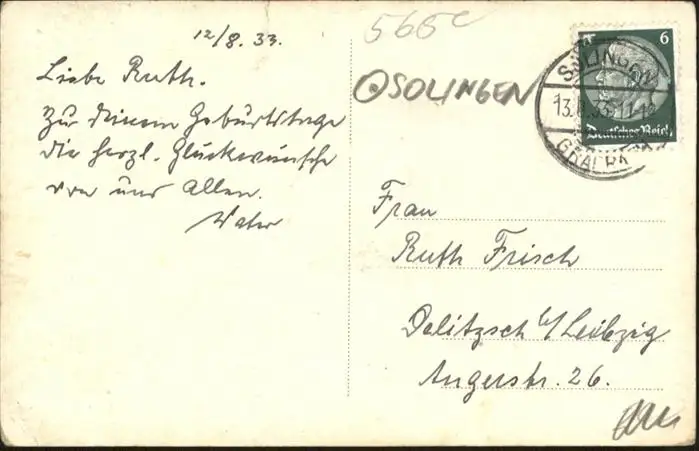 12/8.33.
Liebe Ruth.
Zu deinem Geburtstage
die herzl. Glückwünsche
von uns Allen.
Vater
565
SOLINGEN
6
SOLINGEN
13.8.33.11-12
GRÄFRATH
Deutsches Reich
Frau
Ruth Frisch
Delitzsch b/Leibzig
Angerstr. 26.